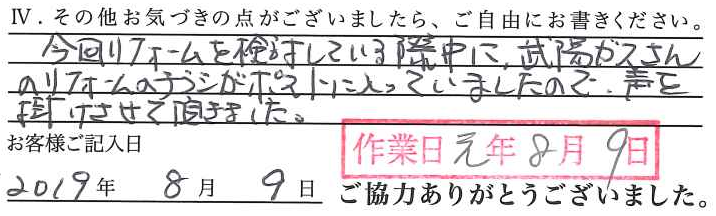 Ⅳ．その他お気づきの点がございましたら、ご自由にお書きください。
今回リフォームを検討している際中に、武陽ガスさん
のリフォームのチラシがポストに入っていましたので、声を
掛けさせて頂きました。
お客様ご記入日
作業日 元年8月9日
2019年 8月 9日 ご協力ありがとうございました。